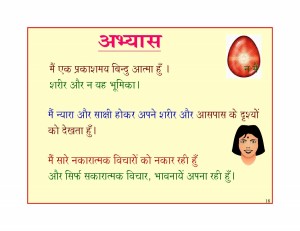 अभ्यास
मैं एक प्रकाशमय बिन्दु आत्मा हुँ ।
शरीर और न यह भूमिका।
मैं न्यारा और साक्षी होकर अपने शरीर और आसपास के दृश्यों
को देखता हुँ।
मैं सारे नकारात्मक विचारों को नकार रही हुँ
और सिर्फ सकारात्मक विचार, भावनायें अपना रही हुँ।